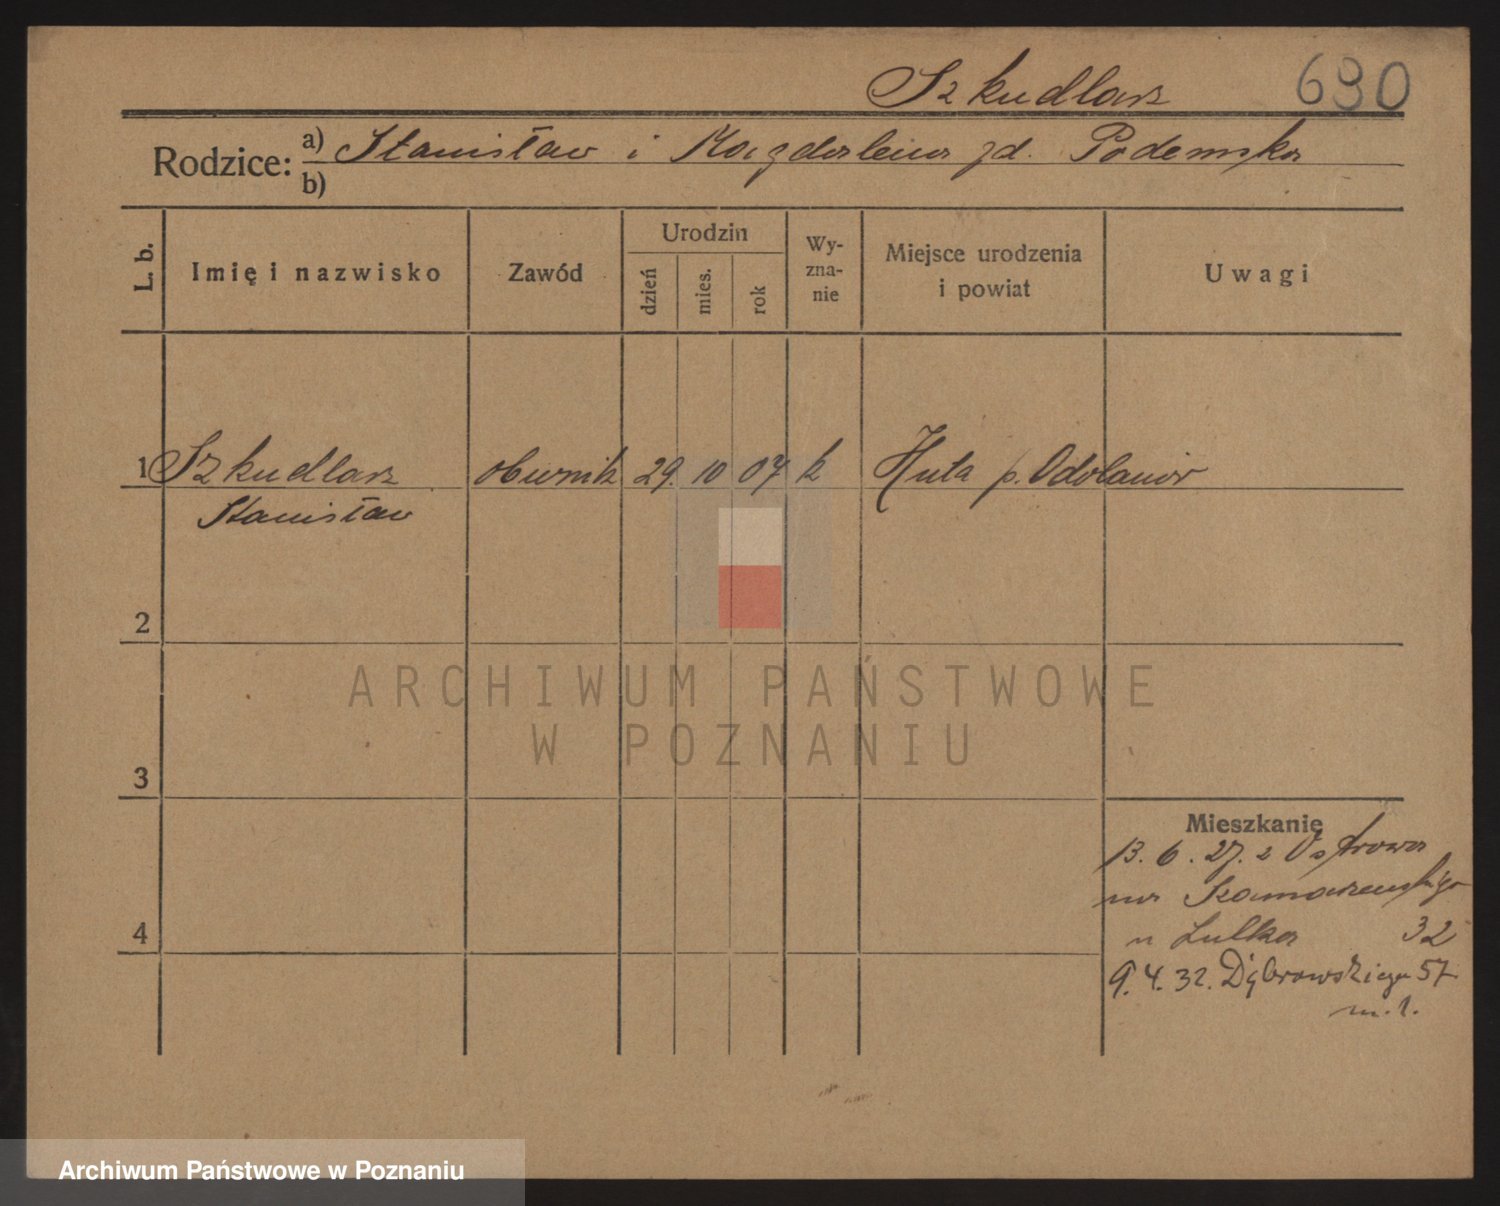 Szkudlarz 690
Rodzice: a) Stanisław i Magdalena zd. Podemska
b)
L. b. Imię i nazwisko Zawód Urodzin dzień mies. rok Wy-zna-nie Miejsce urodzenia i powiat Uwagi
1 Szkudlarz obuwnik 29. 10 07 k Huta p. Odolanów
Stanisław
2
ARCHIWUM PAŃSTWOWE
W POZNANIU
3
Mieszkanie
13. 6. 27. z Ostrowa
na Szamarzewskiego
u Lulka 32
4
9. 4. 32. Dąbrowskiego 57
m. 1.
Archiwum Państwowe w Poznaniu